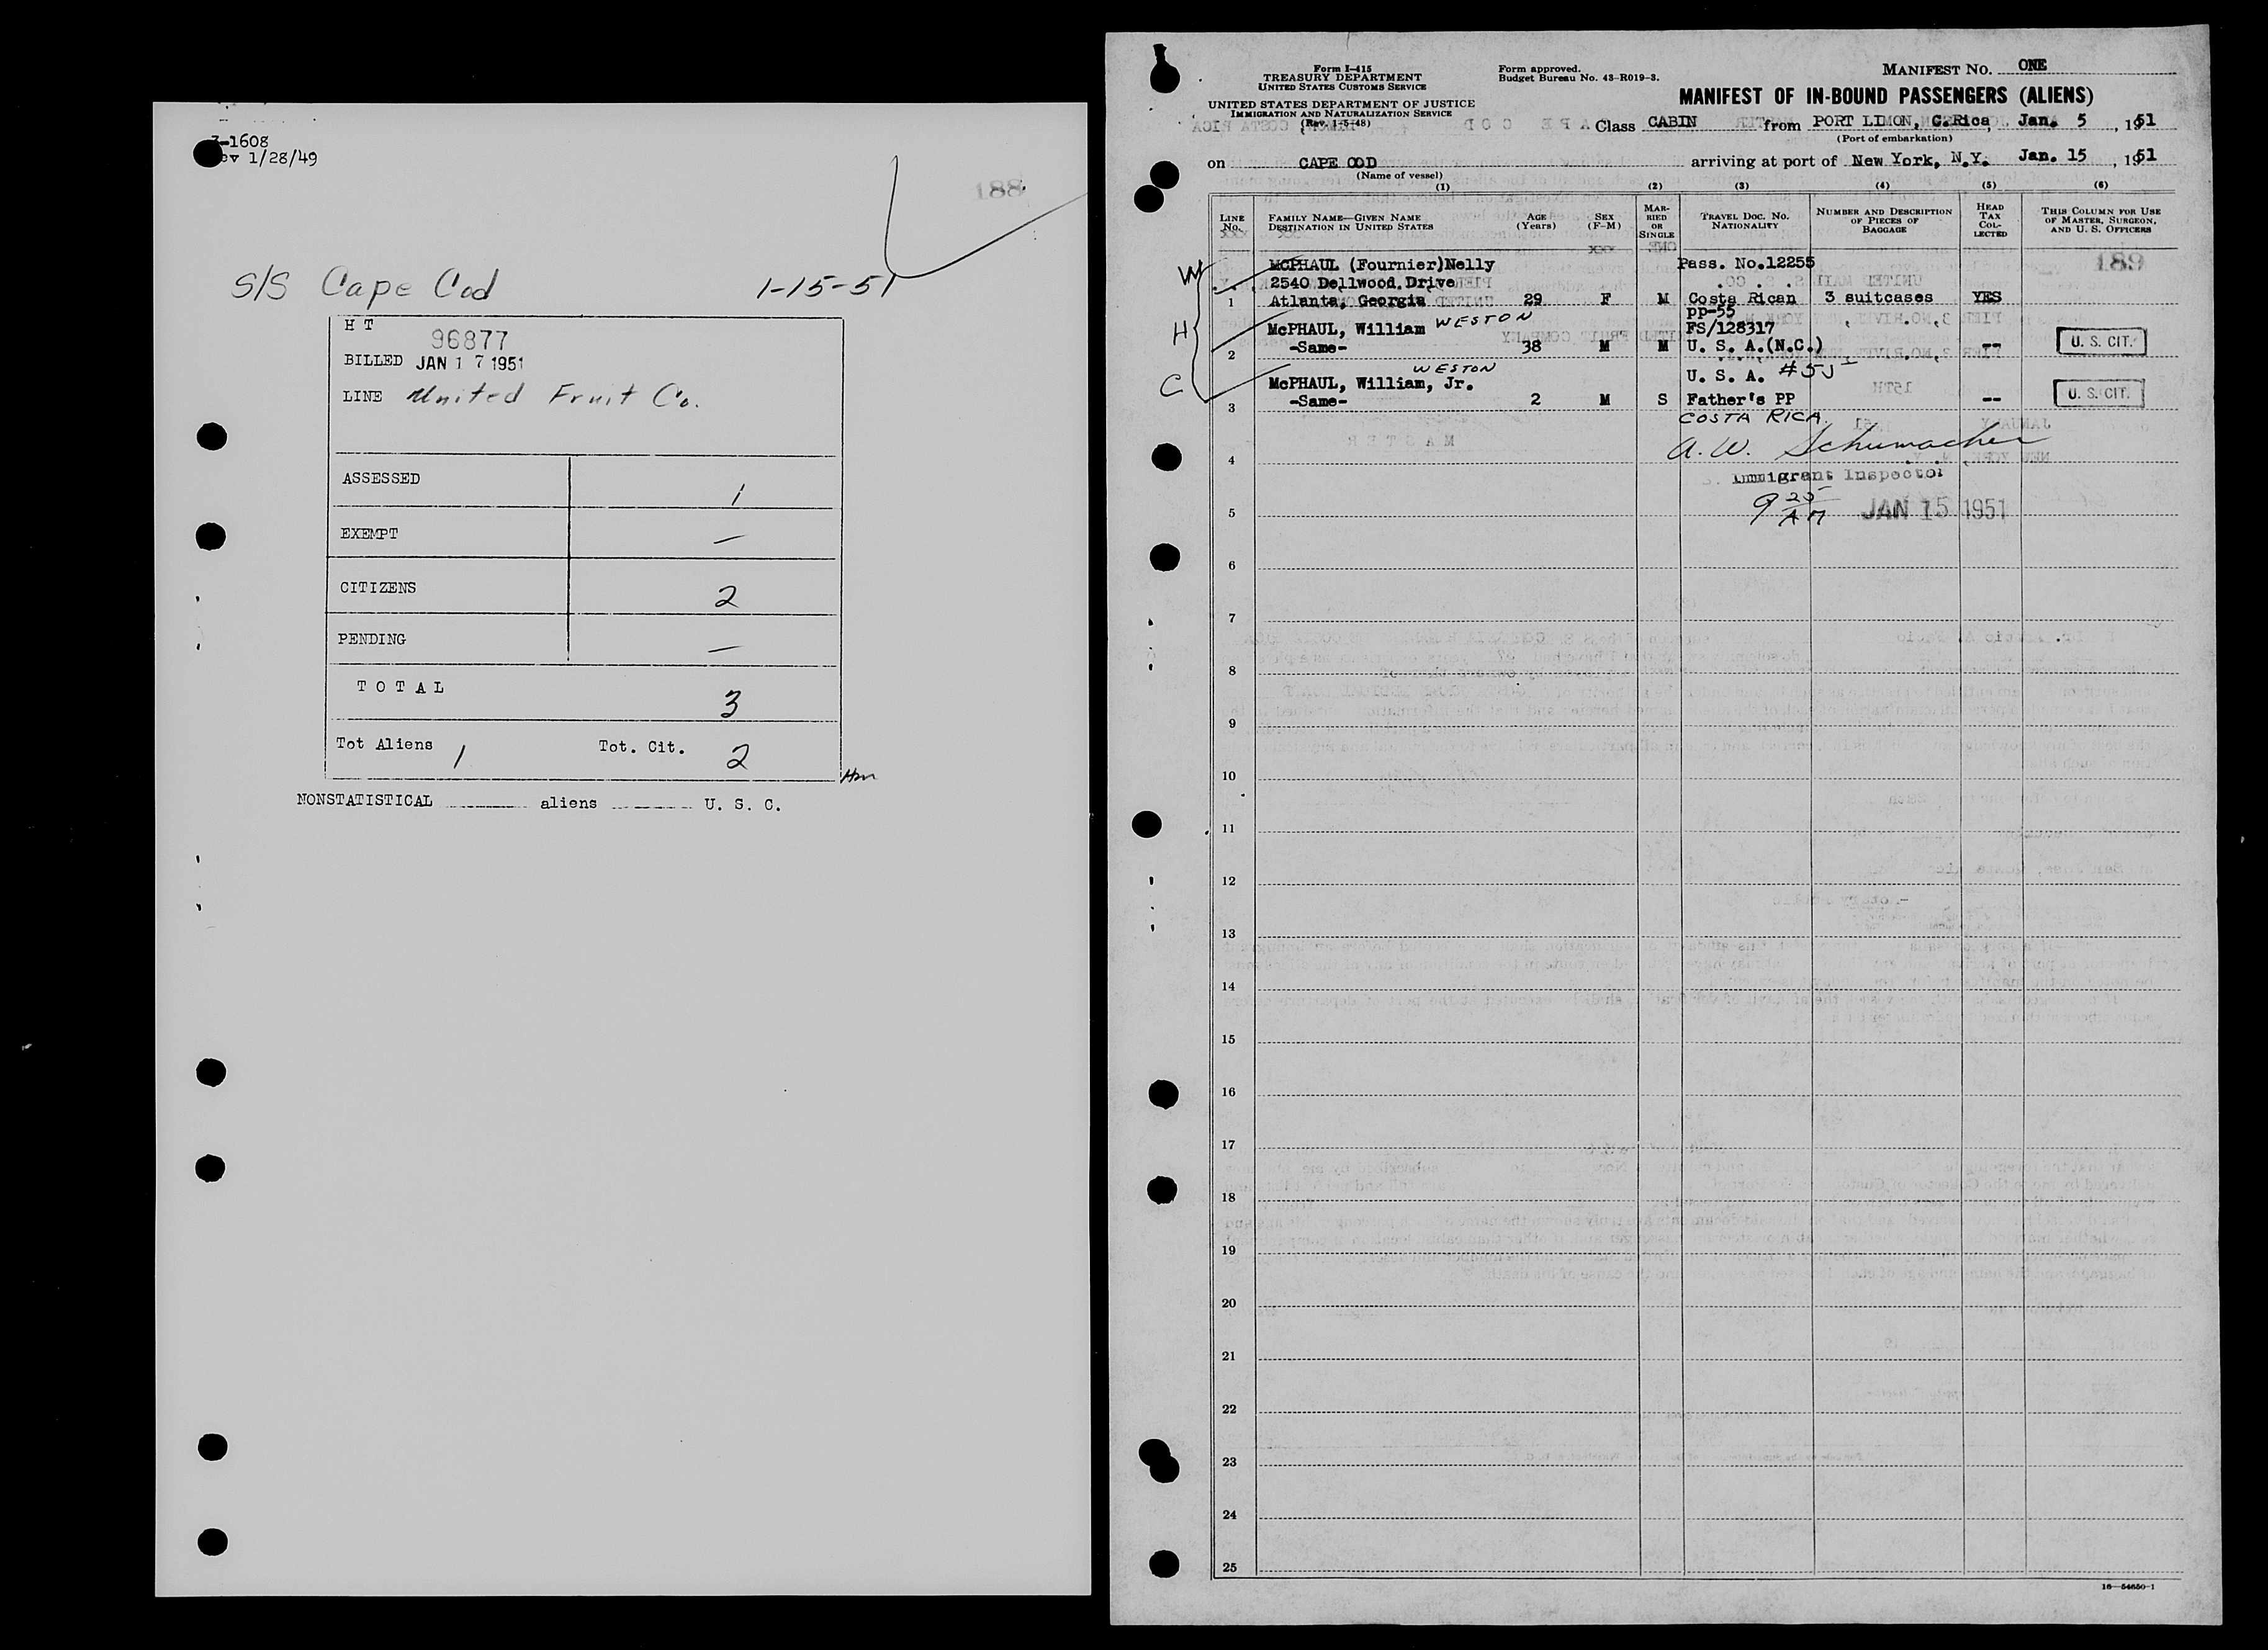 3-1608
1/28/49
188
S/S Cape Cod 1-15-51
H T
96877
BILLED JAN 17 1951
LINE United Fruit Co.
ASSESSED 1
EXEMPT —
CITIZENS 2
PENDING —
TOTAL 3
Tot Aliens 1 Tot. Cit. 2
NONSTATISTICAL aliens U. S. C.
Form I-415
TREASURY DEPARTMENT
UNITED STATES CUSTOMS SERVICE
UNITED STATES DEPARTMENT OF JUSTICE
IMMIGRATION AND NATURALIZATION SERVICE
(Rev. 1-5-48)
Form approved.
Budget Bureau No. 43-R019-3.
MANIFEST NO. ONE
MANIFEST OF IN-BOUND PASSENGERS (ALIENS)
Class CABIN from PORT LIMON, C.Rica, Jan. 5, 1951
(Port of embarkation)
on CAPE COD arriving at port of New York, N.Y. Jan. 15, 1951
(Name of vessel)
(1) (2) (3) (4) (5) (6)
LINE No.
FAMILY NAME—GIVEN NAME
DESTINATION IN UNITED STATES
AGE (Years)
SEX (F-M)
MARRIED OR SINGLE
TRAVEL DOC. NO.
NATIONALITY
NUMBER AND DESCRIPTION OF PIECES OF BAGGAGE
HEAD TAX COLLECTED
THIS COLUMN FOR USE OF MASTER, SURGEON, AND U. S. OFFICERS
189
W
MCPHAUL (Fournier)Nelly Pass. No.12255
2540 Dellwood Drive
1 Atlanta, Georgia 29 F M Costa Rican 3 suitcases YES
pp-55
H McPHAUL, William WESTON FS/128317
2 -Same- 38 M M U. S. A.(N.C.) -- U. S. CIT.
WESTON
C McPHAUL, William, Jr. U. S. A.
3 -Same- 2 M S Father's PP -- U. S. CIT.
COSTA RICA
A. W. Schumacher
4
Immigrant Inspector
9 25 AM JAN 15 1951
5
6
7
8
9
10
11
12
13
14
15
16
17
18
19
20
21
22
23
24
25
16—54650-1